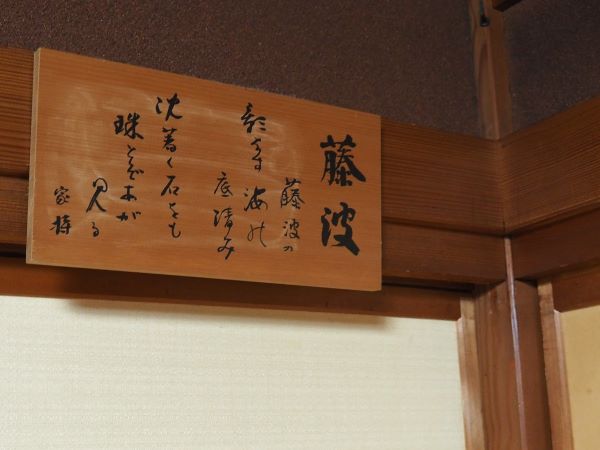 藤波
藤波の
影なす海の
底清み
沈着く石をも
珠とぞわが
見る
家持